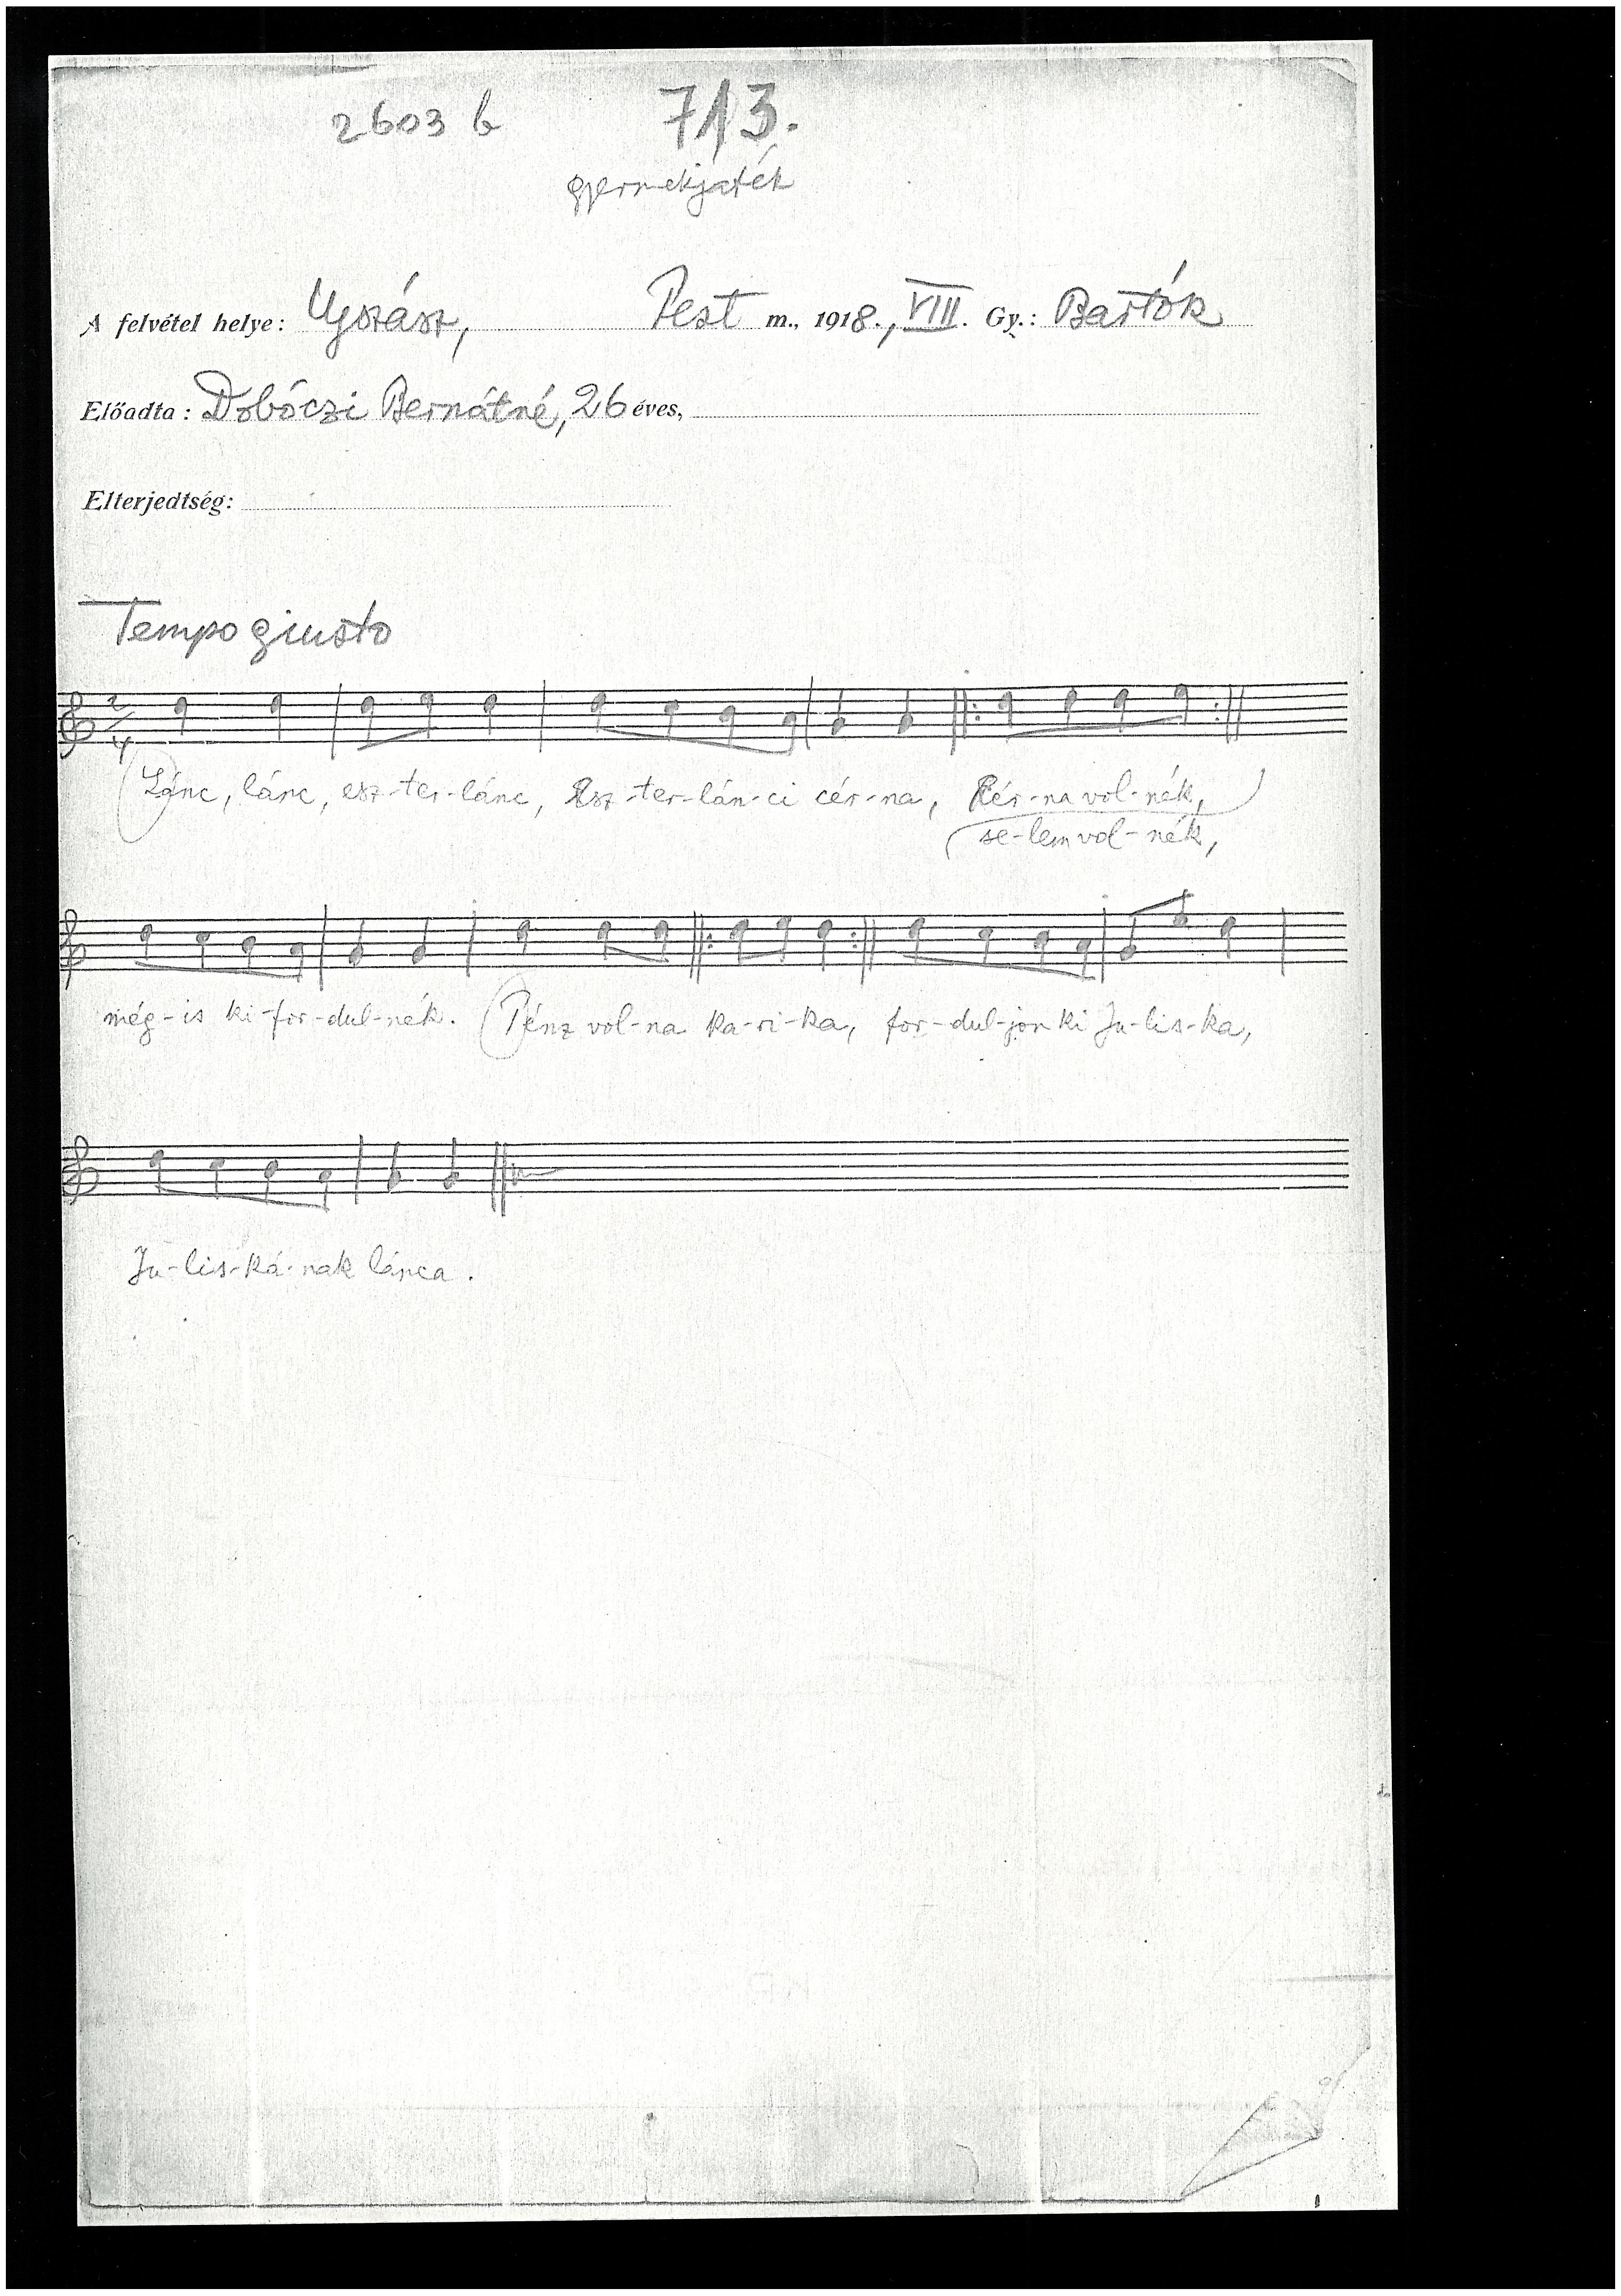 2603 b 713.
gyermekjáték
A felvétel helye: Ujszász, Pest m., 1918., VIII. Gy.: Bartók
Előadta: Dobóczi Bernátné, 26 éves,
Elterjedtség:
Tempo giusto
2/4
Lánc, lánc, esz-ter-lánc, Esz-ter-lán-ci cér-na, Cér-na vol-nék,
se-lem vol-nék,
még-is ki-for-dul-nék. Pénz vol-na ka-ri-ka, for-dul-jon ki Ju-lis-ka,
Ju-lis-ká-nak lánca.